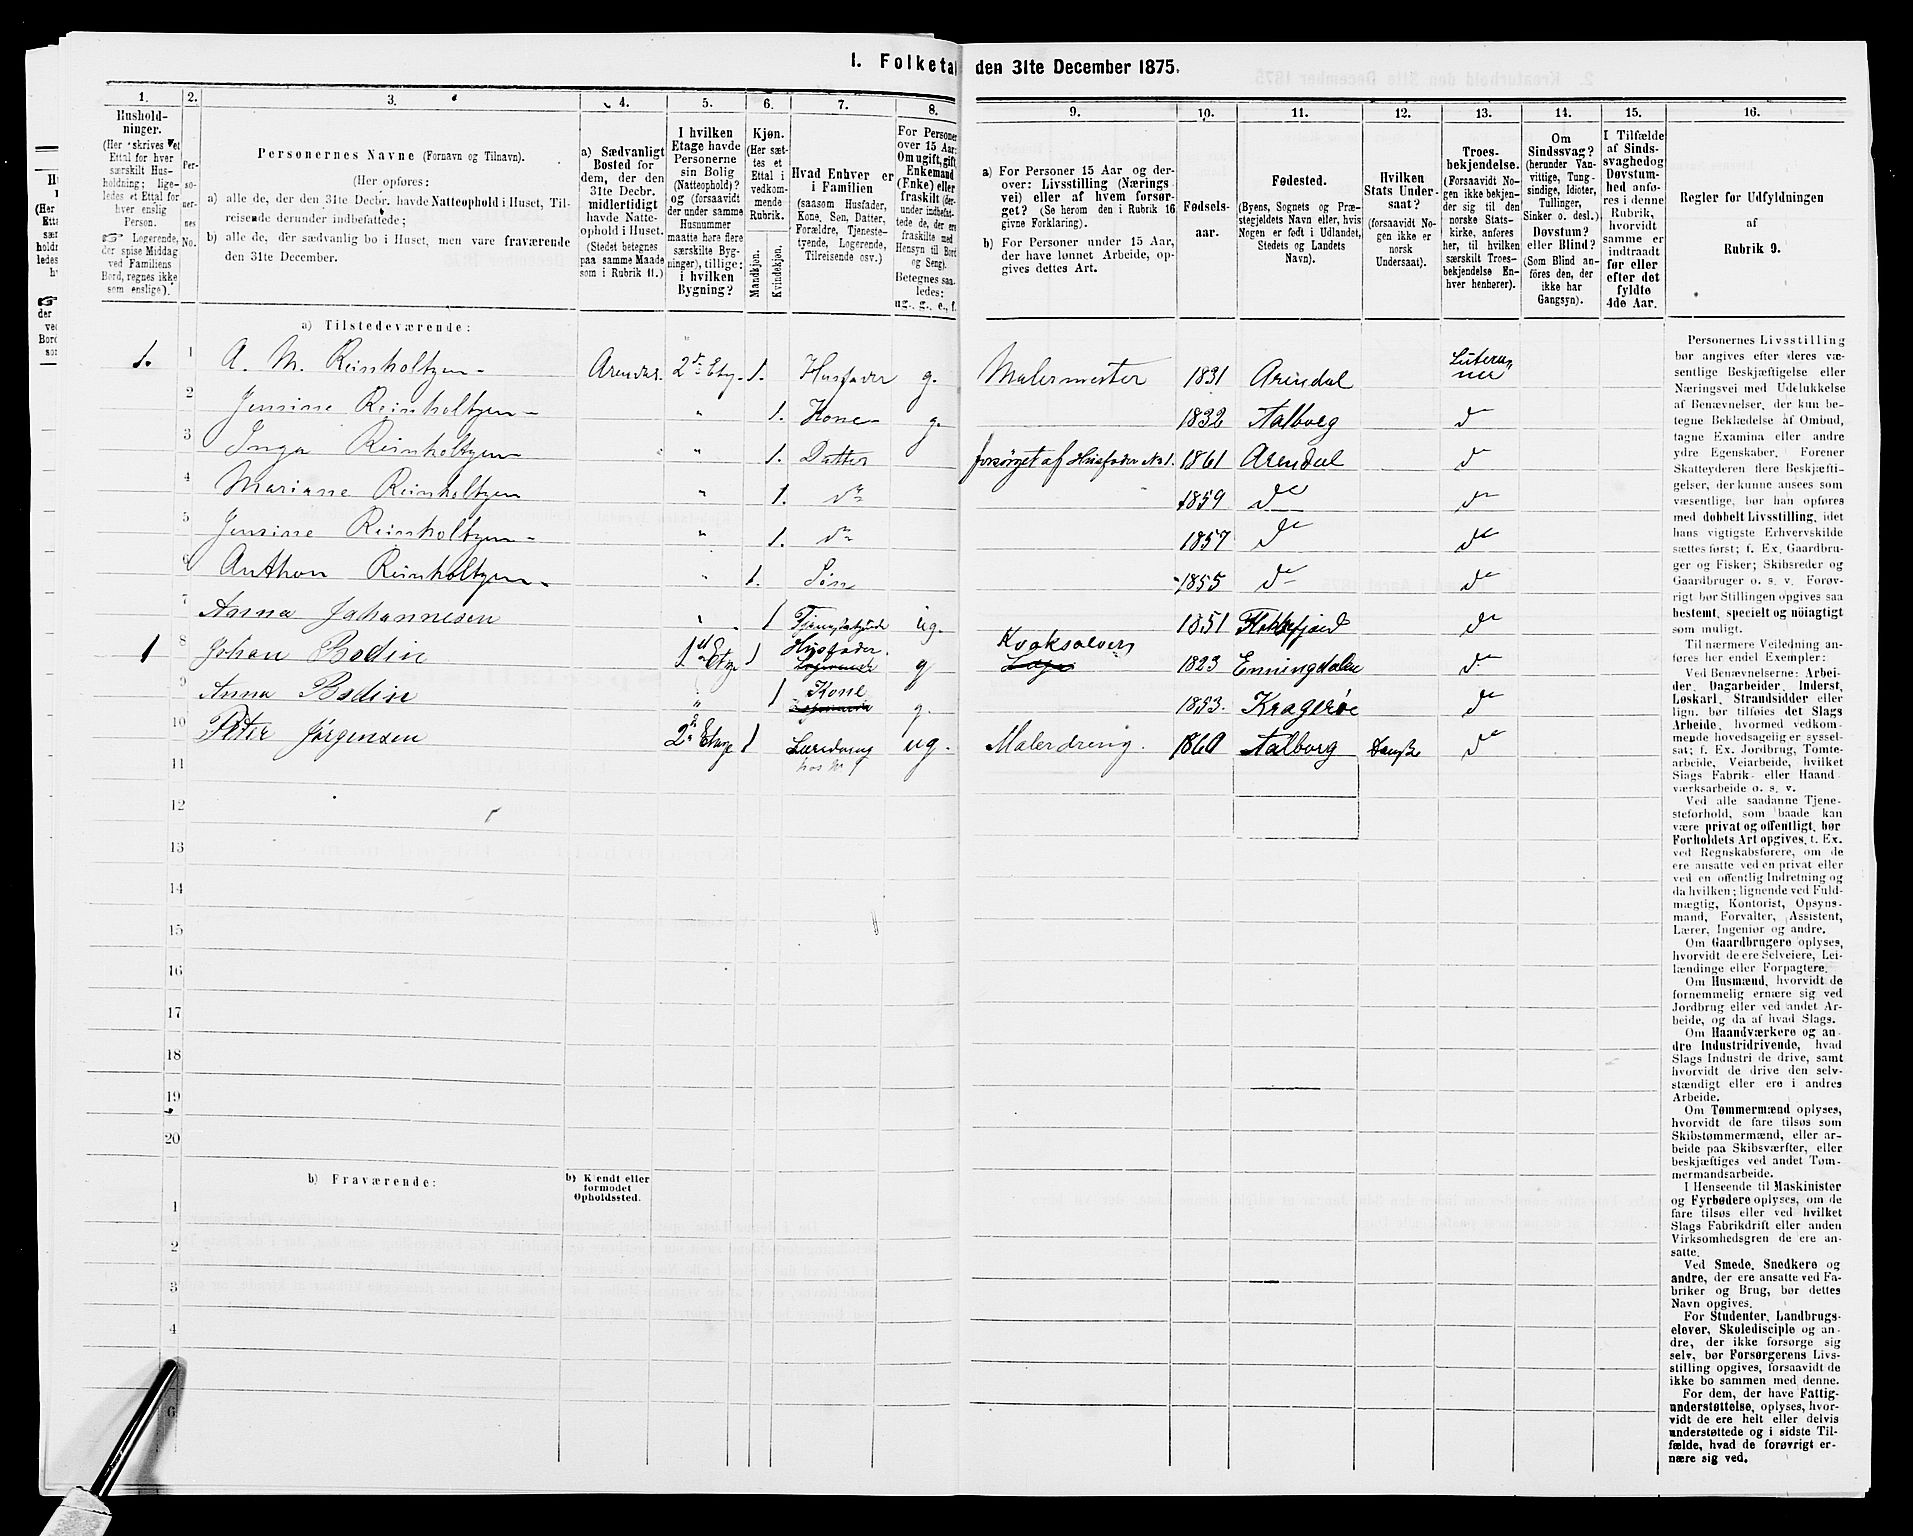 1. Folketal den 31te December 1875.
1. 2. 3. 4. 5. 6. 7. 8. 9. 10. 11. 12. 13. 14. 15. 16.
Husholdninger.
(Her skrives et
Ettal for hver
særskilt Husholdning;
ligeledes et Ettal for
hver enslig
Person.
Logerende,
der spise Middag
ved Familiens
Bord, regnes ikke
som enslige).
Personernes
No.
Personernes Navne (Fornavn og Tilnavn).
(Her opføres:
a) alle de, der den 31te Decbr. havde Natteophold i Huset, Tilreisende
derunder indbefattede;
b) alle de, der sædvanlig bo i Huset, men vare fraværende
den 31te December.
a) Sædvanligt
Bosted for
dem, der den
31te Decbr.
midlertidigt
havde Natteophold
i Huset.
(Stedet betegnes
paa samme Maade
som i Rubrik 11.)
I hvilken
Etage havde
Personerne
sin Bolig
(Natteophold)?
og (forsaavidt
der under samme
Husnummer
maatte høre flere
særskilte Bygninger),
tillige:
i hvilken
Bygning?
Kjøn.
(Her sættes
et
Ettal i
vedkommende
Rubrik.
Mandkjøn.
Kvindekjøn.
Hvad Enhver er
i Familien
(saasom Husfader,
Kone, Søn, Datter,
Forældre, Tjenestetyende,
Logerende,
Tilreisende osv.)
For Personer
over 15 Aar:
Om ugift, gift,
Enkemand
(Enke) eller
fraskilt (derunder
indbefattede
de, der ere
fraskilte med
Hensyn til Bord
og Seng).
Betegnes saaledes:
ug., g., e., f.
a) For Personer 15 Aar og derover:
Livsstilling (Næringsvei)
eller af hvem forsørget?
(Se herom den i Rubrik 16
givne Forklaring).
b) For Personer under 15 Aar,
der have lønnet Arbeide, opgives
dettes Art.
Fødselsaar.
Fødested.
(Byens, Sognets og Præstegjeldets
Navn eller, hvis
Nogen er født i Udlandet,
Stedets og Landets
Navn).
I hvilken
Stats Undersaat?
(forsaavidt Nogen
ikke er
norsk
Undersaat).
Troesbekjendelse.
(Forsaavidt Nogen
ikke bekjender
sig til den
norske Statskirke,
anføres
her, til hvilken
særskilt Troesbekjendelse
Enhver
henhører).
Om
Sindssvag?
(herunder Vanvittige,
Tungsindige,
Idioter,
Tullinger,
Sinker o. desl.)
Døvstum?
eller Blind?
(Som Blind anføres
den, der
ikke har
Gangsyn).
I Tilfælde
af Sindssvaghed
og
Døvstumhed
anføres
i denne
Rubrik,
hvorvidt
samme er
indtraadt
før eller
efter det
fyldte
4de Aar.
Regler for Udfyldningen
af
Rubrik 9.
a) Tilstedeværende:
1. 1 A. M. Reinholtzen Arendal. 2den Etg. 1. Husfader g. Malermester 1831 Arendal Luteraner
2 Jensine Reinholtzen " 1. Kone g. 1832 Aalborg do
3 Inga Reinholtzen " 1. Datter forsørget af Husfader No 1. 1861 Arendal do
4 Mariane Reinholtzen " 1. do 1859 do do
5 Jensine Reinholtzen " 1. do 1857 do do
6 Anthon Reinholtzen " 1. Søn 1855 do do
7 Anna Johannesen " 1 Tjenestetyende ug. 1851 do
1 8 Johan Bodin 1st Etage 1 Husfader. Logerende g Kvaksalveri 1823 Enningdalen do
9 Anna Bodin " 1 Kone Logerende g. 1833. Kragerøe do
10 Peter Jørgensen 2n Etage 1 Læredreng hos No 1 ug. Malerdreng. 1860 Aalborg Dansk do
11
12
13
14
15
16
17
18
19
20
b) Fraværende: b) Kjendt eller
formodet
Opholdssted.
1
2
3
4
6
Personernes Livsstilling
bør angives efter deres væsentlige
Beskjæftigelse eller
Næringsvei med Udelukkelse
af Benævnelser, der kun betegne
Beklædelse af Ombud,
tagne Examina eller andre
ydre Egenskaber. Forener
Skatteyderen flere Beskjæftigelser,
der kunne ansees som
væsentlige, bør han opføres
med dobbelt Livsstilling, idet
hans vigtigste Erhvervskilde
sættes først; f. Ex. Gaardbruger
og Fisker; Skibsreder og
Gaardbruger o. s. v. Forøvrigt
bør Stillingen opgives saa
bestemt, specielt og nøiagtigt
som muligt.
Til nærmere Veiledning anføres
her endel Exempler:
Ved Benævnelserne: Arbeider,
Dagarbeider, Inderst,
Løskarl, Strandsidder eller
lign. bør tilføies det Slags
Arbeide, hvormed vedkommende
hovedsagelig er sysselsat;
f. Ex. Jordbrug, Tomtearbeide,
Veiarbeide, hvilket
Slags Fabrik- eller Haandværksarbeide
o. s. v.
Ved alle saadanne Tjenesteforhold,
som baade kan
være privat og offentligt, bør
Forholdets Art opgives, f. Ex.
ved Regnskabsførere, om de
ere ansatte ved en privat eller
ved en offentlig Indretning og
da hvilken; lignende ved Fuldmægtig,
Kontorist, Opsynsmand,
Forvalter, Assistent,
Lærer, Ingeniør og andre.
Om Gaardbrugere oplyses,
hvorvidt de ere Selveiere, Leilændinge
eller Forpagtere.
Om Husmænd, hvorvidt de
fornemmelig ernære sig ved
Jordbrug eller ved andet Arbeide,
og da af hvad Slags.
Om Haandværkere og andre
Industridrivende, hvad
Slags Industri de drive, samt
hvorvidt de drive den selvstændigt
eller ere i andres
Arbeide.
Om Tømmermænd oplyses,
hvorvidt de fare tilsøs som
Skibstømmermænd, eller arbeide
paa Skibsværfter, eller
beskjæftiges ved andet Tømmermandsarbeide.
I Henseende til Maskinister
og Fyrbødere oplyses, om de
fare tilsøs eller ved hvilket
Slags Fabrikdrift eller anden
Virksomhedsgren de ere ansatte.
Ved Smede, Snedkere og
andre, der ere ansatte ved Fabriker
og Brug, bør dettes
Navn opgives.
For Studenter, Landbrugselever,
Skoledisciple og andre,
der ikke forsørge sig
selv, bør Forsørgerens Livsstilling
opgives, forsaavidt de
ikke bo sammen med denne.
For dem, der have Fattigunderstøttelse,
oplyses, hvorvidt
de ere helt eller delvis
understøttede og i sidste Tilfælde,
hvad de forøvrigt ernære
sig ved.